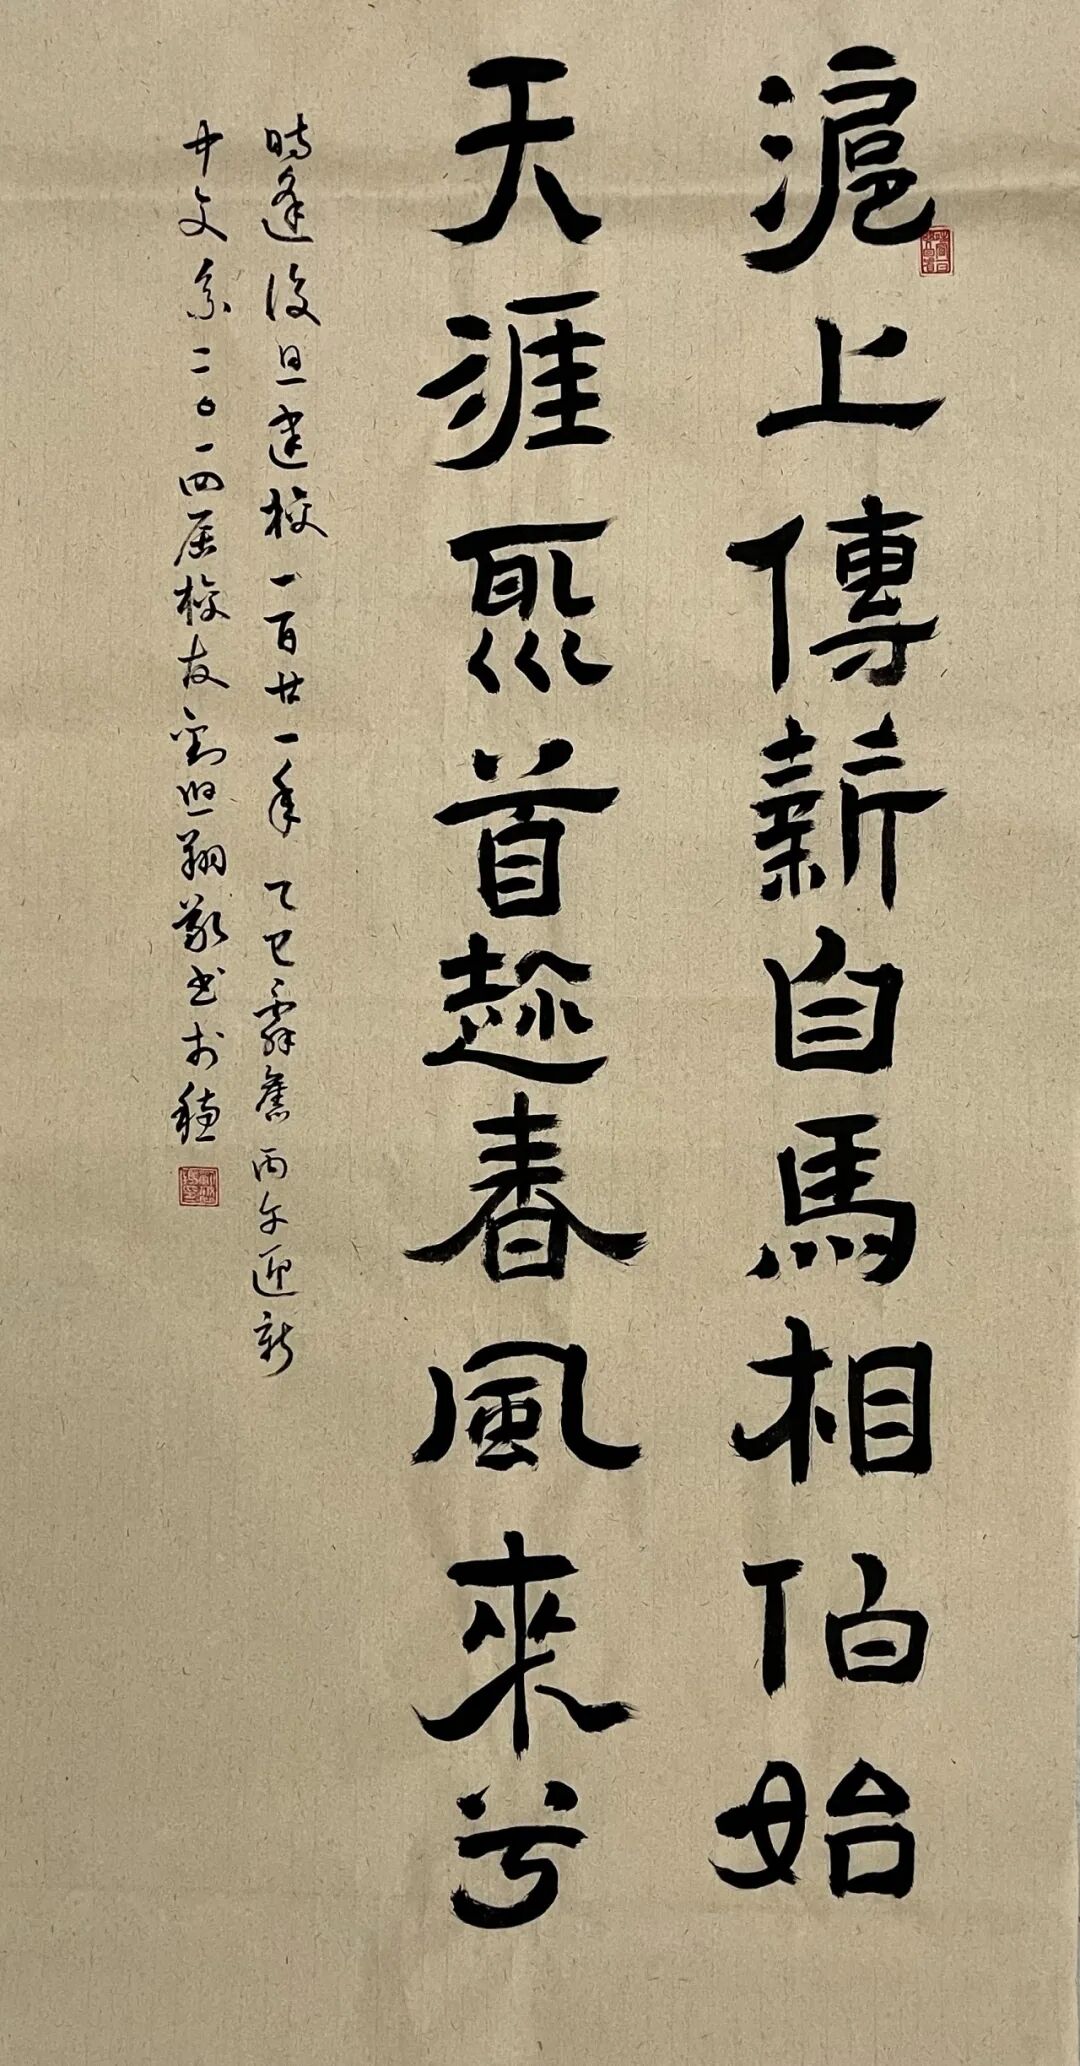 滬上傳薪自馬相伯始
天涯聚首趁春風來兮
時逢復旦建校一百廿一年乙巳辭舊丙午迎新
中文系二〇一四屆校友劉照翔敬書於穗